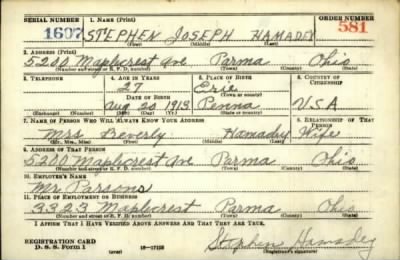 SERIAL NUMBER 1. NAME (Print) ORDER NUMBER
1607 STEPHEN JOSEPH HAMADEY 581
(First) (Middle) (Last)
2. ADDRESS (Print)
5200 Maplecrest Ave Parma Ohio
(Number and street or R. F. D. number) (Town) (County) (State)
3. TELEPHONE 4. AGE IN YEARS 5. PLACE OF BIRTH 6. COUNTRY OF CITIZENSHIP
27 Erie
DATE OF BIRTH (Town or county)
Aug 20 1913 Penna USA
(Exchange) (Number) (Mo.) (Day) (Yr.) (State or country)
7. NAME OF PERSON WHO WILL ALWAYS KNOW YOUR ADDRESS 8. RELATIONSHIP OF THAT PERSON
Mrs Beverly Hamadey Wife
(Mr., Mrs., Miss) (First) (Middle) (Last)
9. ADDRESS OF THAT PERSON
5200 Maplecrest Ave Parma Ohio
(Number and street or R. F. D. number) (Town) (County) (State)
10. EMPLOYER'S NAME
Mr Parsons
11. PLACE OF EMPLOYMENT OR BUSINESS
3323 Maplecrest Parma Ohio
(Number and street or R. F. D. number) (Town) (County) (State)
I AFFIRM THAT I HAVE VERIFIED ABOVE ANSWERS AND THAT THEY ARE TRUE.
REGISTRATION CARD
D. S. S. Form 1 (over) Stephen Hamadey